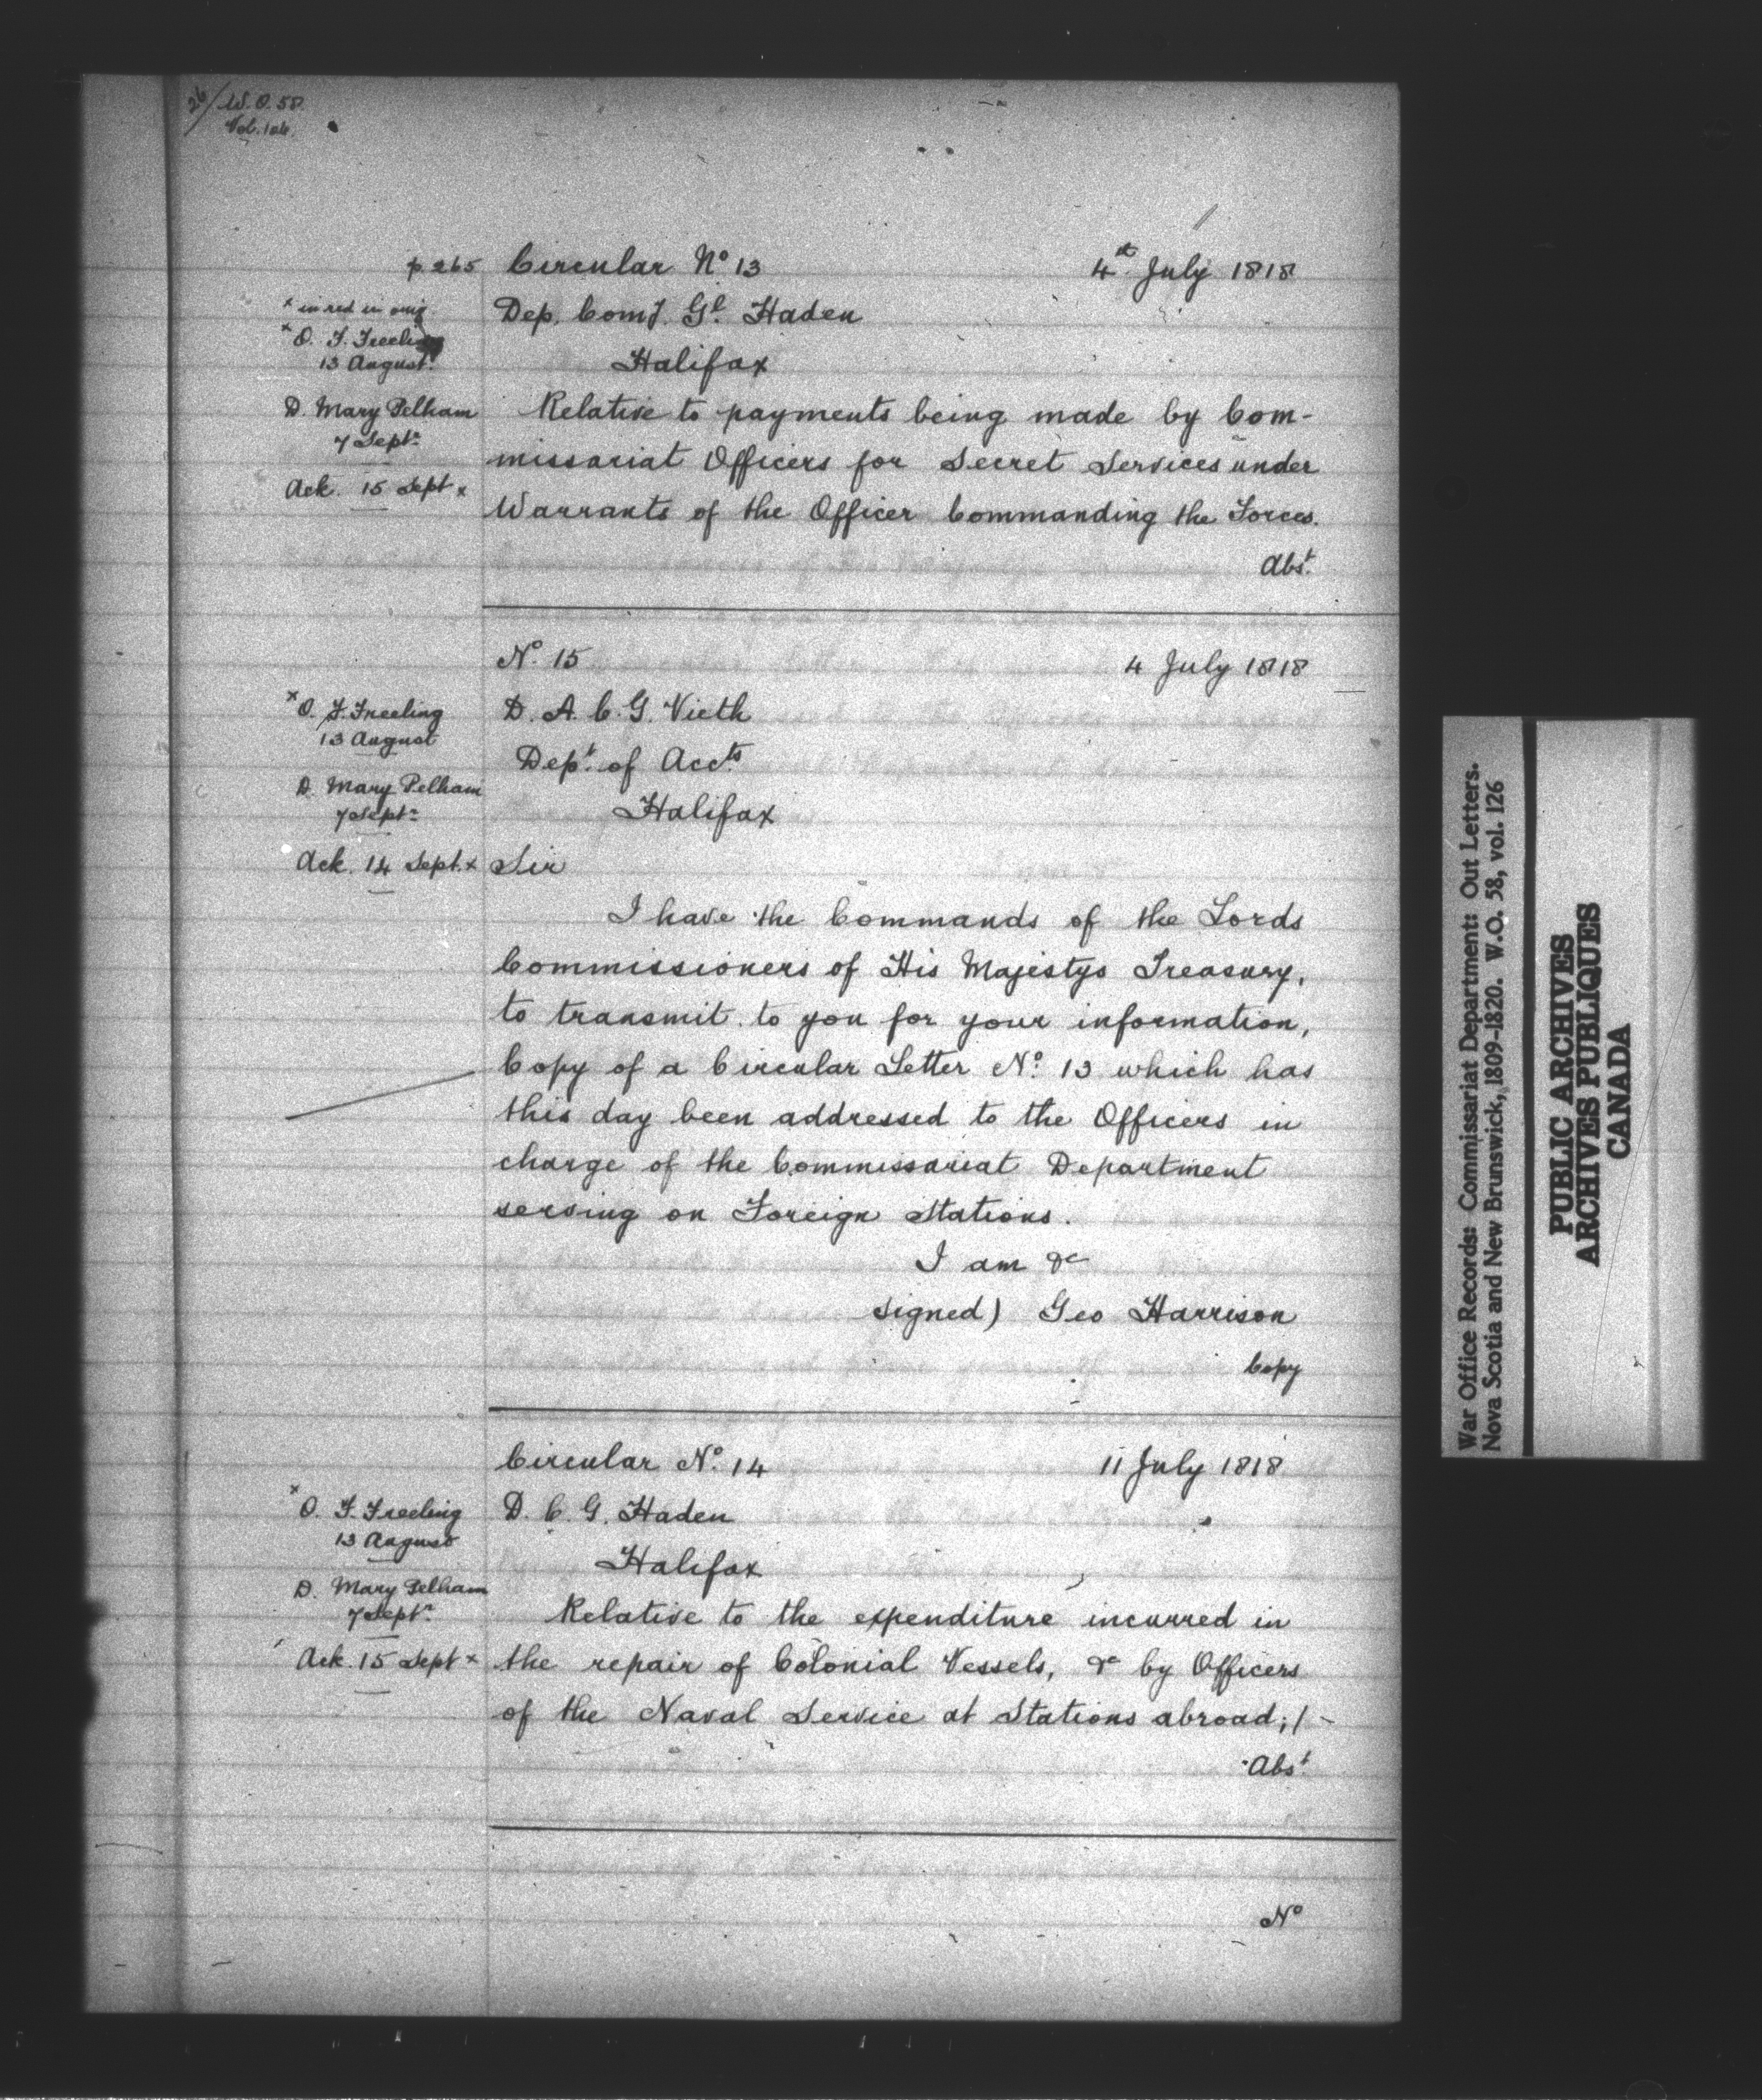 26/ W.O. 58.
Vol. 126.
p 265 Circular No 13 4th July 1818
x in red in orig.
Dep. Comy. Gl. Haden
x O. F. Freeling
13 August.
Halifax
D. Mary Pelham
7 Septr
Ack. 15 Sept x
Relative to payments being made by Com-
missariat Officers for Secret Services under
Warrants of the Officer Commanding the Forces.
Abst.
No. 15 4 July 1818
x O. F. Freeling
13 August
D. Mary Pelham
7 Septr
Ack. 14 Sept. x
D. A. C. G. Vieth
Dept. of Accts
Halifax
Sir
I have the Commands of the Lords
Commissioners of His Majestys Treasury,
to transmit to you for your information,
Copy of a Circular Letter No. 13 which has
this day been addressed to the Officers in
charge of the Commissariat Department
serving on Foreign Stations.
I am &c
signed) Geo Harrison
Copy
Circular No. 14 11 July 1818
x O. F. Freeling
13 August
D. Mary Pelham
7 Septr
Ack. 15 Sept x
D. C. G. Haden
Halifax
Relative to the expenditure incurred in
the repair of Colonial Vessels, &c by Officers
of the Naval Service at Stations abroad;/-
Abst
No
War Office Records: Commissariat Department: Out Letters.
Nova Scotia and New Brunswick, 1809-1820. W.O. 58, vol. 126
PUBLIC ARCHIVES
ARCHIVES PUBLIQUES
CANADA